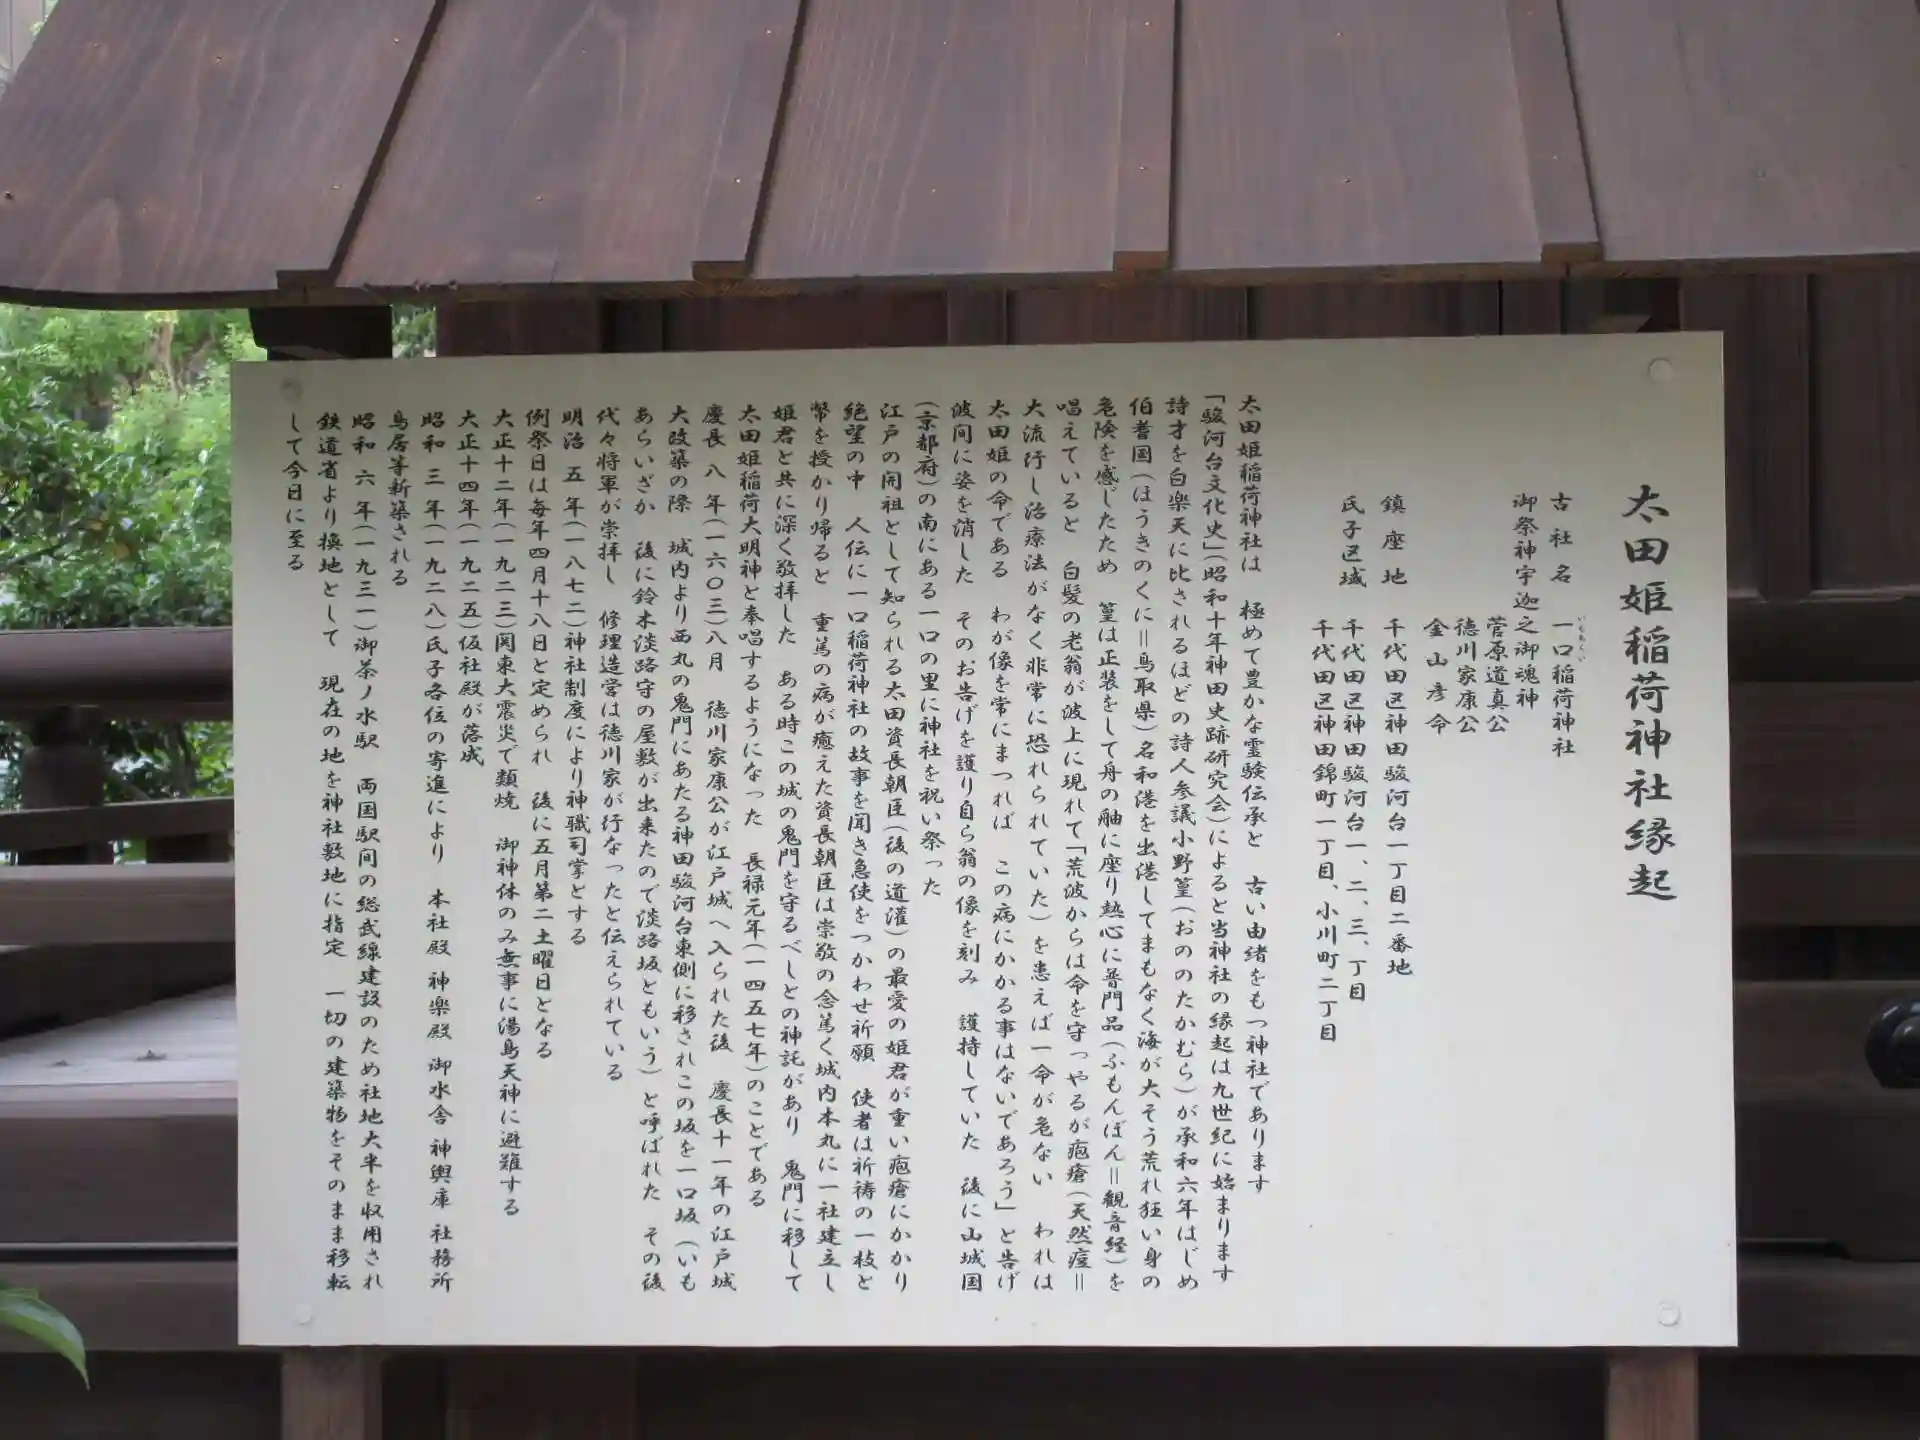 太田姫稲荷神社縁起
古社名 一口稲荷神社
いもあらい
御祭神宇迦之御魂神
菅原道真公
徳川家康公
金山彦命
鎮座地 千代田区神田駿河台一丁目二番地
氏子区域 千代田区神田駿河台一、二、三、丁目
千代田区神田錦町一丁目、小川町二丁目
太田姫稲荷神社は 極めて豊かな霊験伝承と 古い由緒をもつ神社であります
「駿河台文化史」(昭和十年神田史跡研究会)によると当神社の縁起は九世紀に始まります
詩才を白楽天に比されるほどの詩人参議小野篁(おののたかむら)が承和六年はじめ
伯耆国(ほうきのくに＝鳥取県)名和港を出港してまもなく海が大そう荒れ狂い身の
危険を感じたため 篁は正装をして舟の舳に座り熱心に普門品(ふもんぼん＝観音経)を
唱えていると 白髪の老翁が波上に現れて「荒波からは命を守つやるが疱瘡(天然痘＝
大流行し治療法がなく非常に恐れられていた)を患えば一命が危ない われは
太田姫の命である わが像を常にまつれば この病にかかる事はないであろう」と告げ
波間に姿を消した そのお告げを護り自ら翁の像を刻み 護持していた 後に山城国
(京都府)の南にある一口の里に神社を祝い祭った
江戸の開祖として知られる太田資長朝臣(後の道灌)の最愛の姫君が重い疱瘡にかかり
絶望の中 人伝に一口稲荷神社の故事を聞き急使をつかわせ祈願 使者は祈祷の一枝と
幣を授かり帰ると 重篤の病が癒えた資長朝臣は崇敬の念篤く城内本丸に一社建立し
姫君と共に深く敬拝した ある時この城の鬼門を守るべしとの神託があり 鬼門に移して
太田姫稲荷大明神と奉唱するようになった 長禄元年(一四五七年)のことである
慶長 八 年(一六〇三)八月 徳川家康公が江戸城へ入られた後 慶長十一年の江戸城
大改築の際 城内より西丸の鬼門にあたる神田駿河台東側に移されこの坂を一口坂(いも
あらいざか 後に鈴木淡路守の屋敷が出来たので淡路坂ともいう)と呼ばれた その後
代々将軍が崇拝し 修理造営は徳川家が行なったと伝えられている
明治 五 年(一八七二)神社制度により神職司掌とする
例祭日は毎年四月十八日と定められ 後に五月第二土曜日となる
大正十二年(一九二三)関東大震災で類焼 御神体のみ無事に湯島天神に避難する
大正十四年(一九二五)仮社殿が落成
昭和 三 年(一九二八)氏子各位の寄進により 本社殿 神楽殿 御水舎 神輿庫 社務所
鳥居等新築される
昭和 六 年(一九三一)御茶ノ水駅 両国駅間の総武線建設のため社地大半を収用され
鉄道省より換地として 現在の地を神社敷地に指定 一切の建築物をそのまま移転
して今日に至る